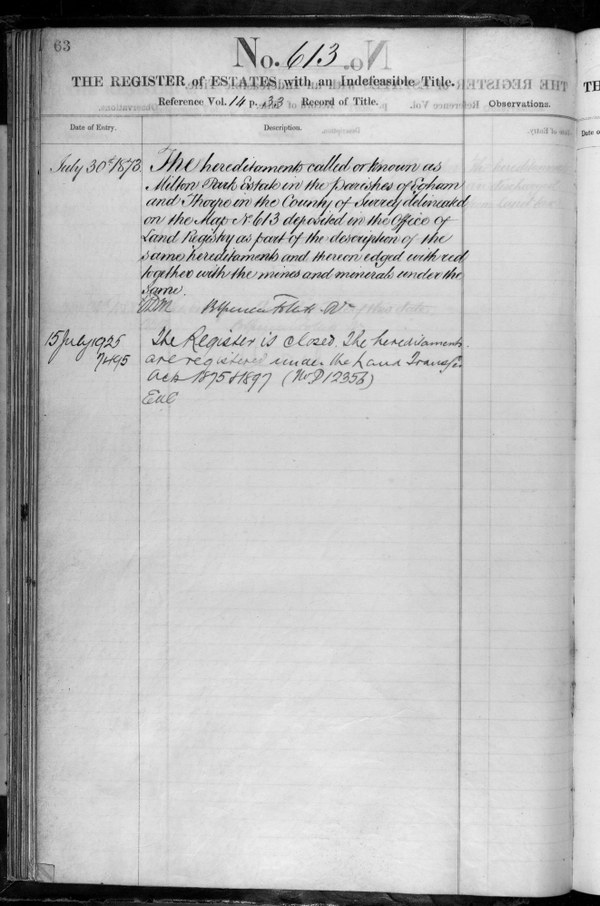 63
No. 613
THE REGISTER of ESTATES with an Indefeasible Title.
Reference Vol. 14 p. 33 Record of Title.
Observations.
Date of Entry.
Description.
July 30th 1873.
The hereditaments called or known as
Milton Park Estate in the parishes of Egham
and Thorpe in the County of Surrey delineated
on the Map No 613 deposited in the Office of
Land Registry as part of the description of the
same hereditaments and thereon edged with red
together with the mines and minerals under the
same.
15 July 1925
7495
The Register is closed. The hereditaments
are registered under the Land Transfer
Acts 1875 & 1897 (No P12356)